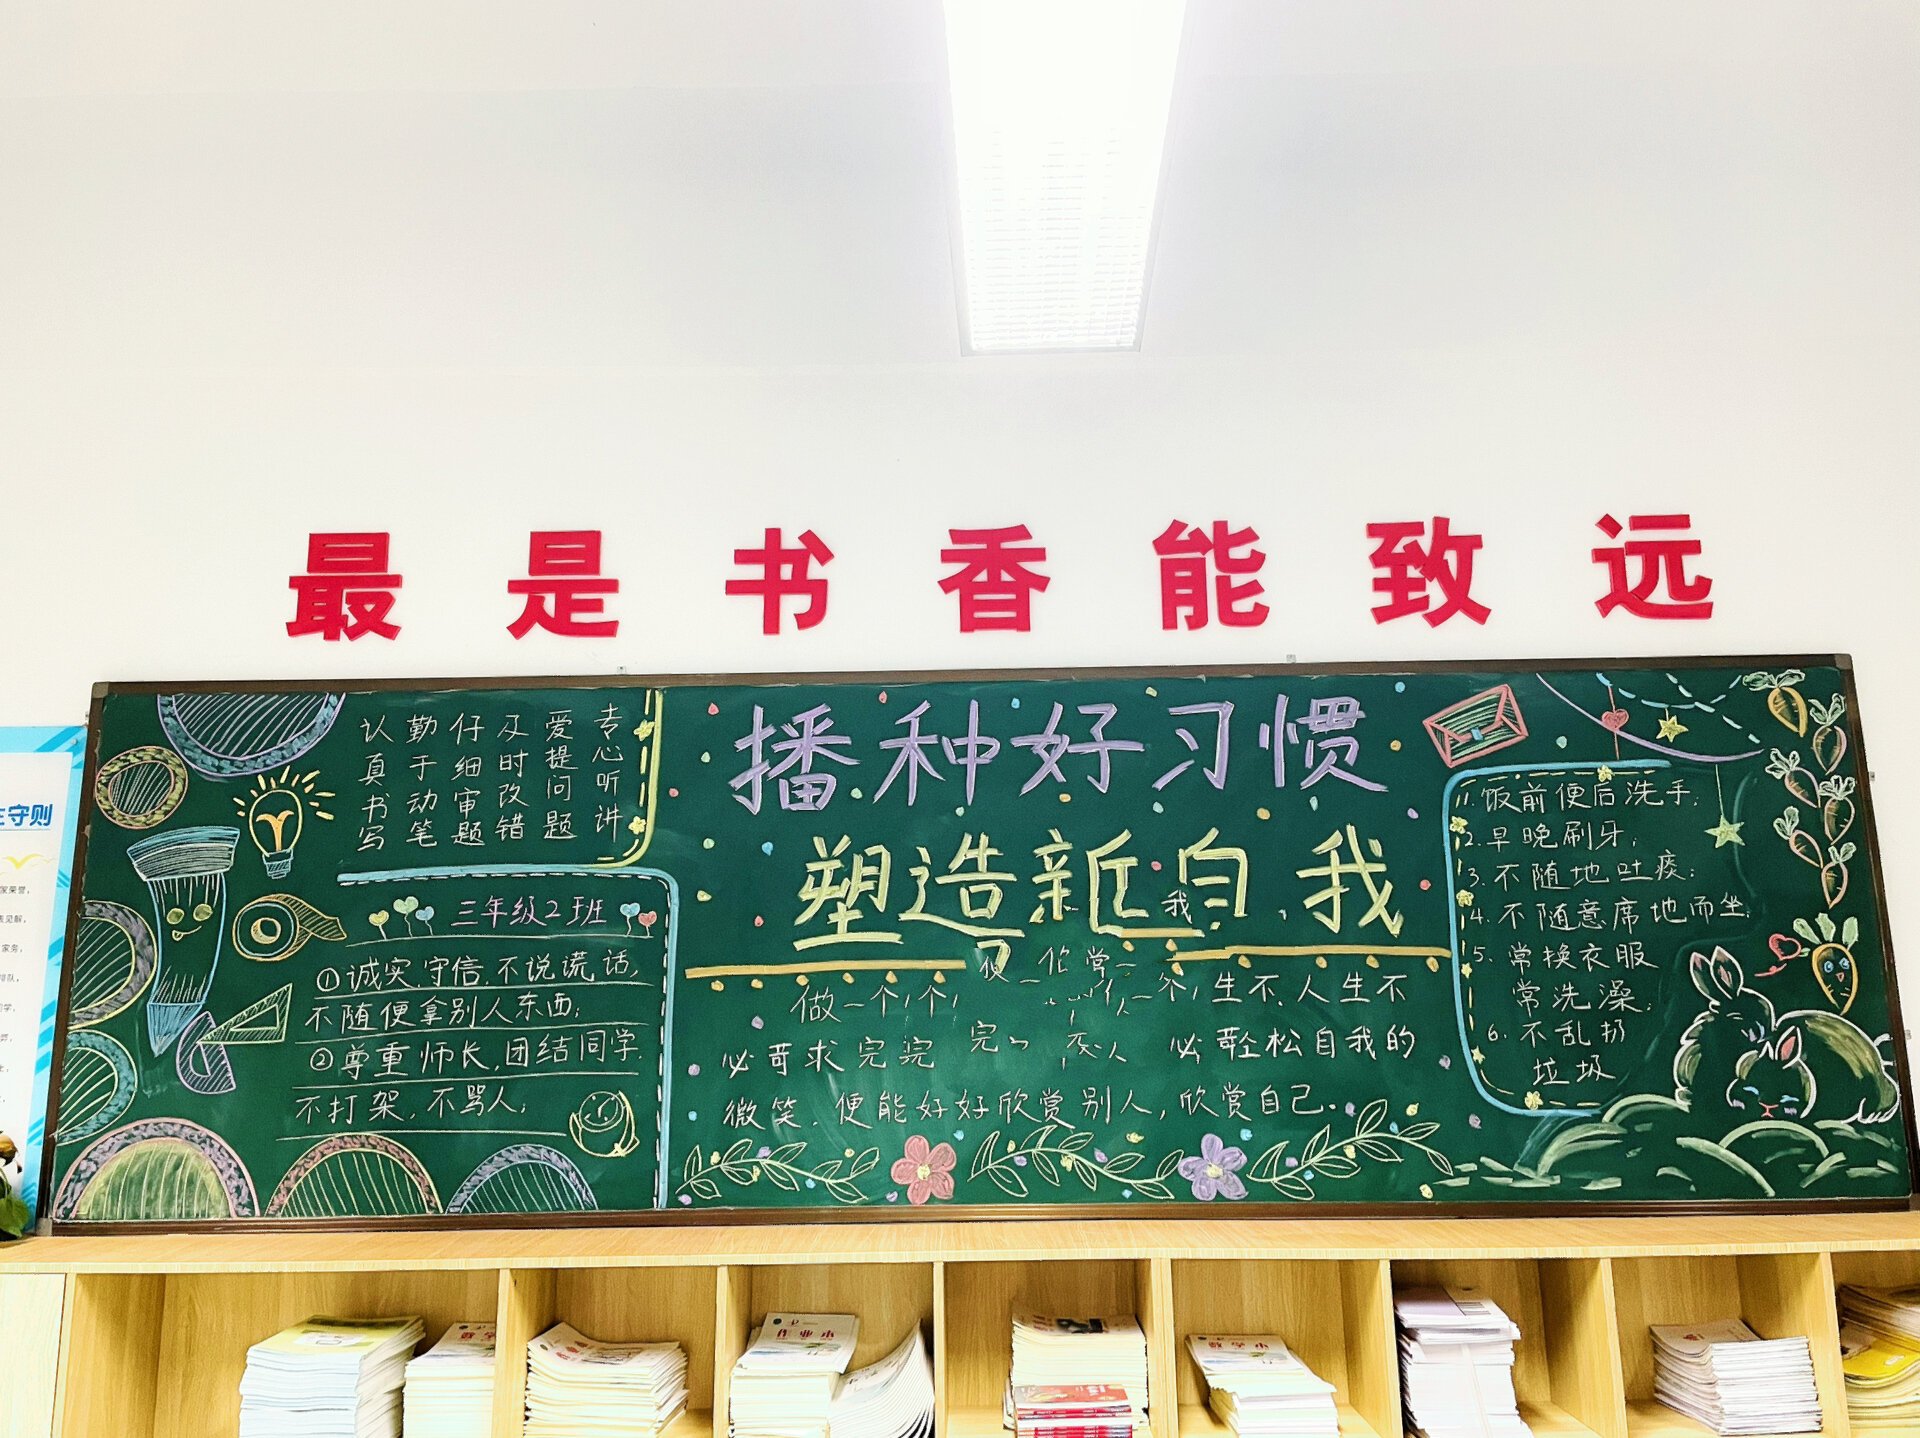 最是书香能致远
播种好习惯
塑造新自我
认真书写
勤于动笔
仔细审题
及时改错
爱提问题
专心听讲
三年级2班
①诚实守信,不说谎话,
不随便拿别人东西;
②尊重师长,团结同学.
不打架,不骂人;
我
做一个
欣赏
生不
人生不
必苛求完
必
轻松自我的
微笑,便能好好欣赏别人,欣赏自己.
1.饭前便后洗手;
2.早晚刷牙;
3.不随地吐痰;
4.不随意席地而坐;
5.常换衣服
常洗澡;
6.不乱扔
垃圾
守则
作业本
数学本